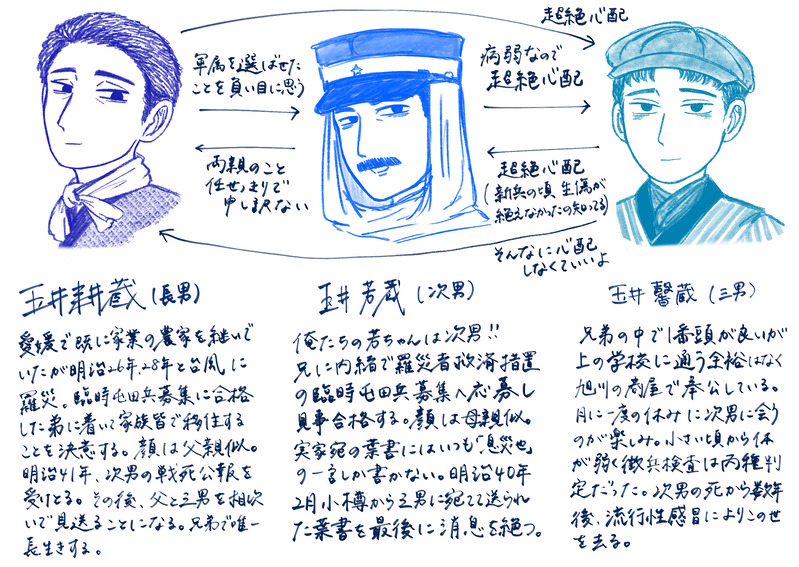 超絶心配
軍属を選ばせた
ことを負い目に思う
病弱なので
超絶心配
両親のこと
任せっきりで
申し訳ない
超絶心配
(新兵の頃 生傷が
絶えなかったの知ってる)
そんなに心配
しなくていいよ
玉井耕蔵(長男)
愛媛で既に家業の農家を継いで
いたが明治26年、28年と台風に
罹災。臨時屯田兵募集に合格
した弟に着い家族皆で移住する
ことを決意する。顔は父親似。
明治41年、次男の戦死公報を
受けとる。その後、父と三男を相次
いで見送ることになる。兄弟で唯一
長生きする。
玉井芳蔵(次男)
俺たちの芳ちゃんは次男!!
兄に内緒で罹災者救済措置
の臨時屯田兵募集へ応募し
見事合格する。顔は母親似。
実家宛の葉書にはいつも「息災也」
の一言しか書かない。明治40年
2月小樽から三男に宛てて送られ
た葉書を最後に消息を絶つ。
玉井馨蔵(三男)
兄弟の中で1番頭が良いが
上の学校に通う余裕はなく
旭川の商屋で奉公している。
月に一度の休みに次男に会う
のが楽しみ。小さい頃から体
が弱く徴兵検査は丙種判
定だった。次男の死から数年
後、流行性感冒によりこの世
を去る。